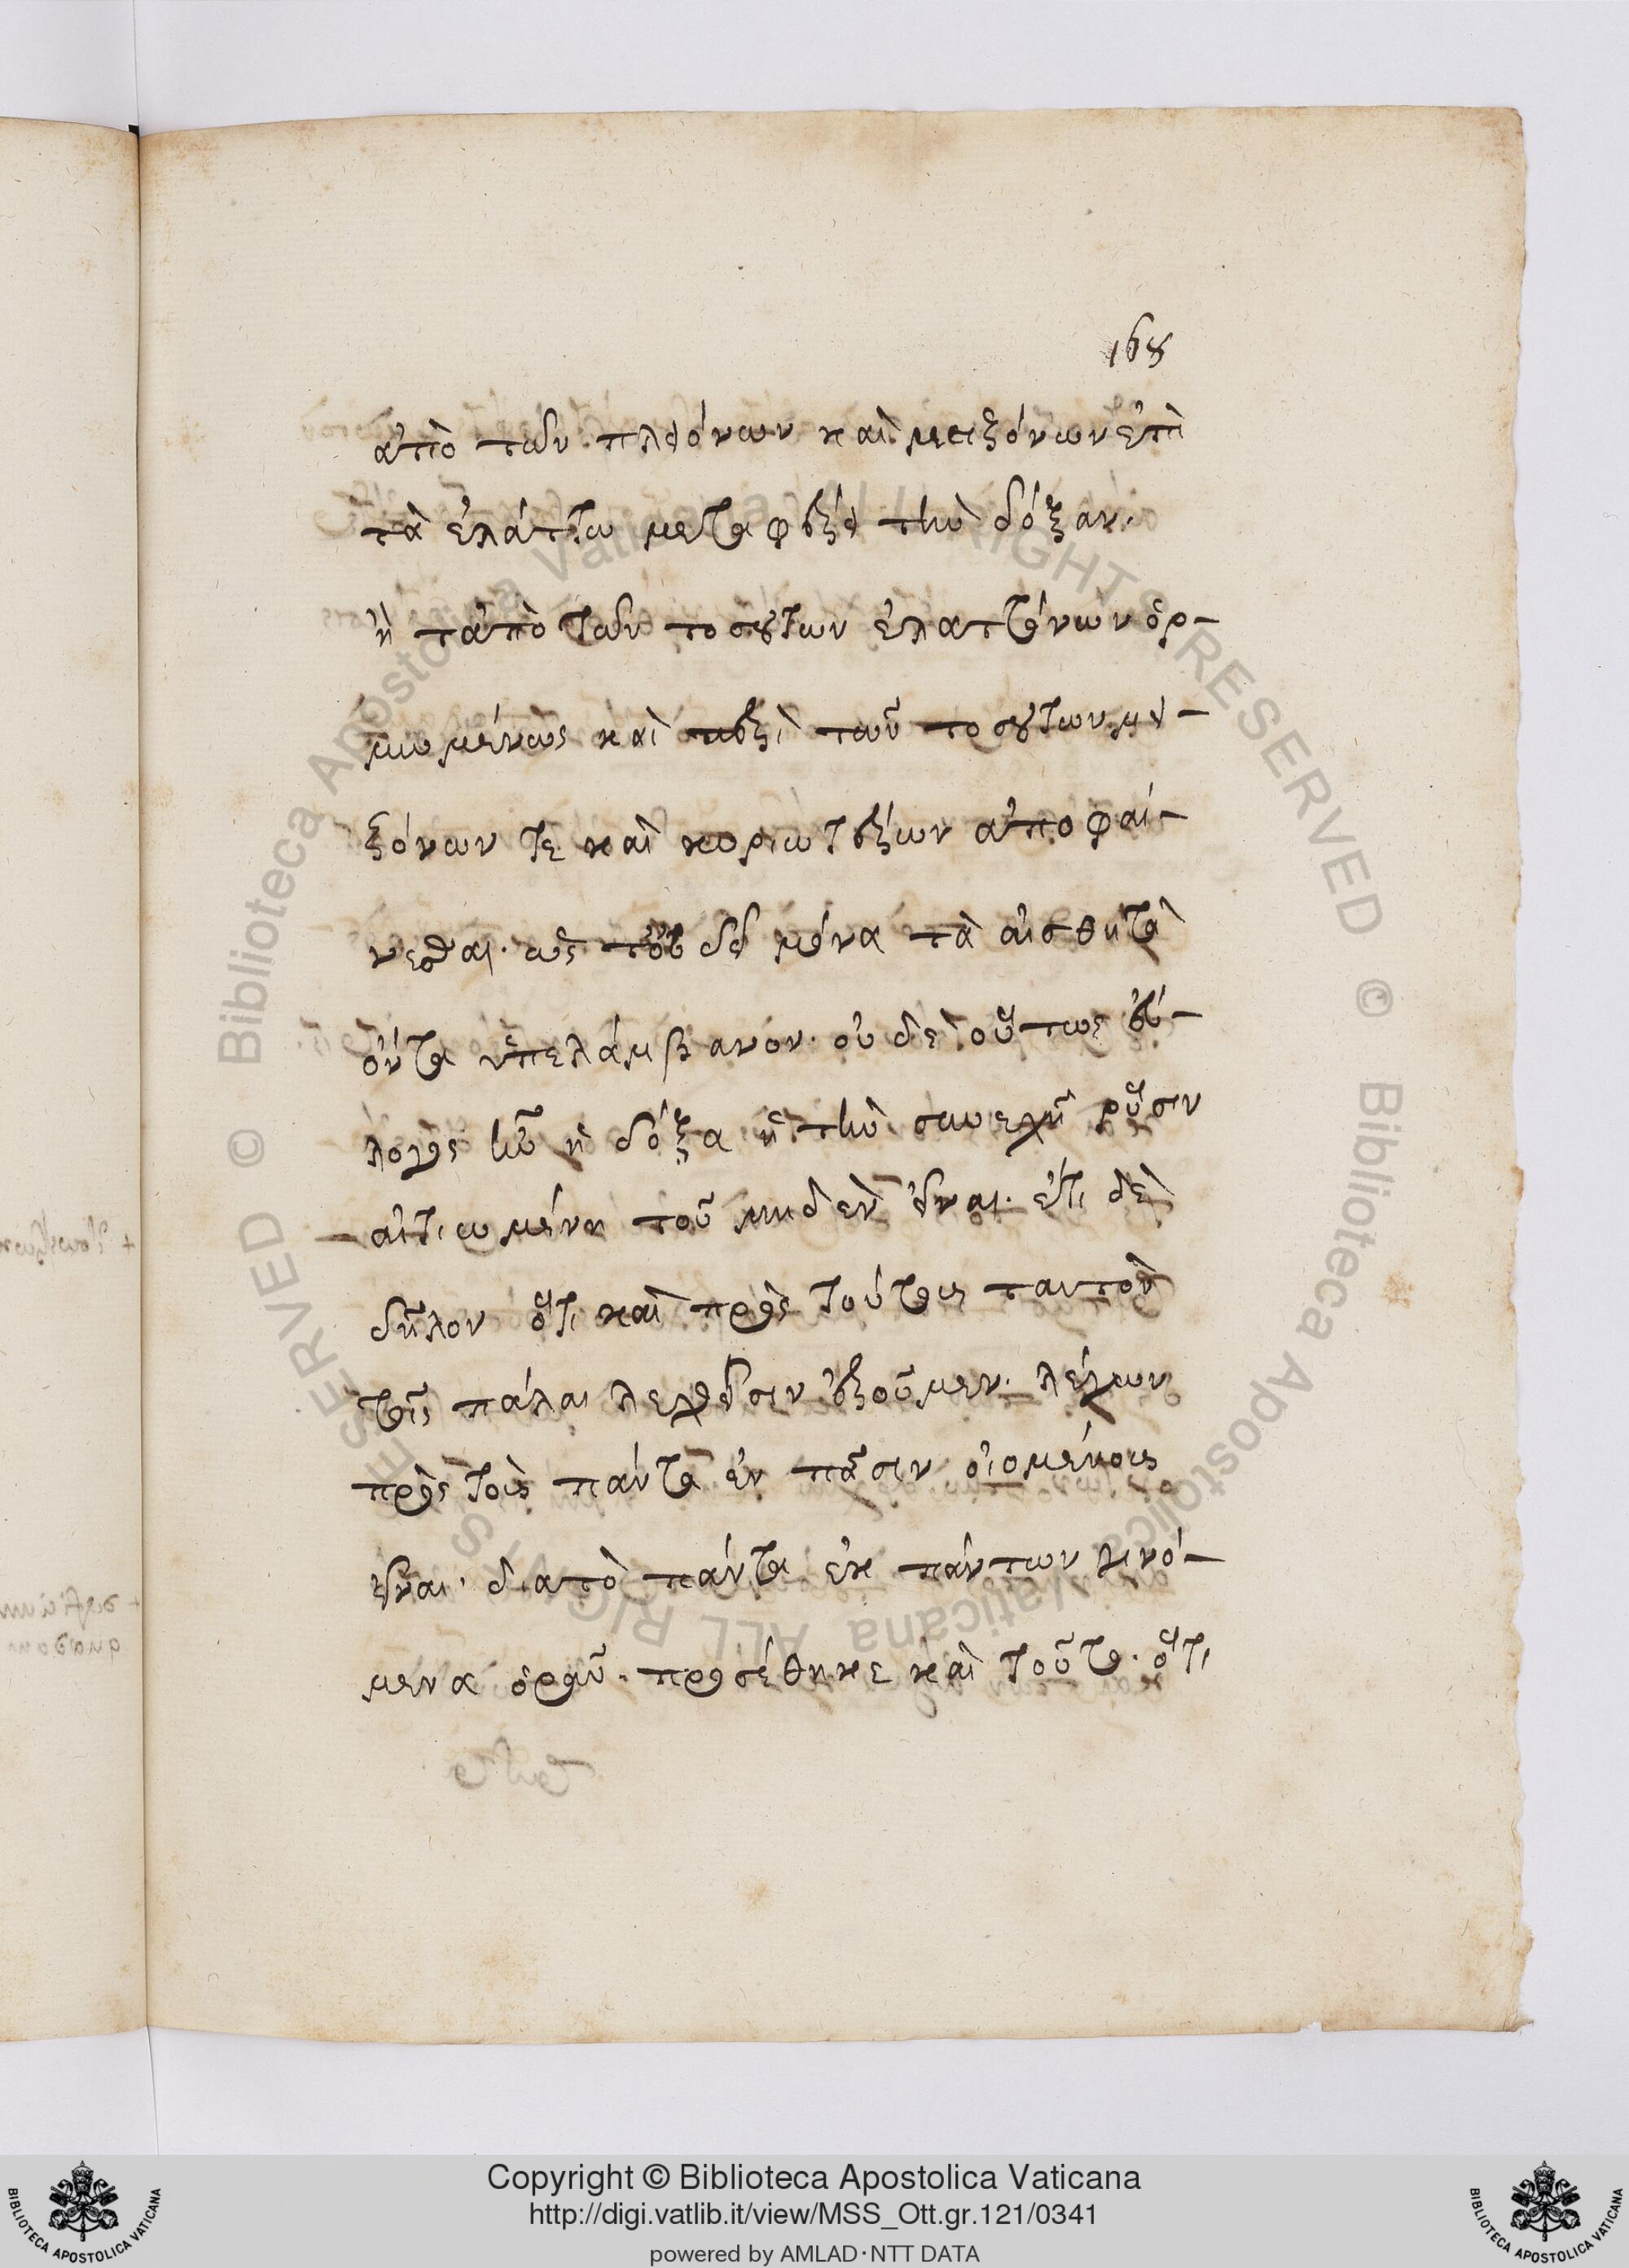 168
ἀπὸ τῶν πλειόνων καὶ μειζόνων ἐπὶ
τὰ ἐλάττω μεταφέρει τὴν δόξαν.
ἢ τἀπὸ τῶν τοσούτων ἐλαττόνων ὁρ-
μωμένους καὶ περὶ τῶν τοσούτων μει-
ζόνων τε καὶ κυριωτέρων ἀποφαί-
νεσθαι. ὡς δὲ μόνα τὰ αἰσθητὰ
ὄντα ὑπελάμβανον. οὐδὲ οὕτως εὔ-
λογος ἦν ἡ δόξα ἡ τὴν συνεχῆ ῥύσιν
αἰτιωμένη τοῦ μηδὲν εἶναι. ἔτι δὲ
δῆλον ὅτι καὶ πρὸς τούτους ταυτὸν
τοῖς πάλαι λεχθεῖσιν ἐροῦμεν. λέγων
πρὸς τοὺς πάντα ἐν πᾶσιν οἰομένους
εἶναι. διατὸ πάντα ἐκ πάντων γινό-
μενα ὁρᾶν. προσέθηκε καὶ τοῦτο. ὅτι
Copyright © Biblioteca Apostolica Vaticana
http://digi.vatlib.it/view/MSS_Ott.gr.121/0341
powered by AMLAD·NTT DATA
BIBLIOTECA APOSTOLICA VATICANA
BIBLIOTECA APOSTOLICA VATICANA
© Biblioteca Apostolica Vaticana ALL RIGHTS RESERVED
© Biblioteca Apostolica Vaticana ALL RIGHTS RESERVED